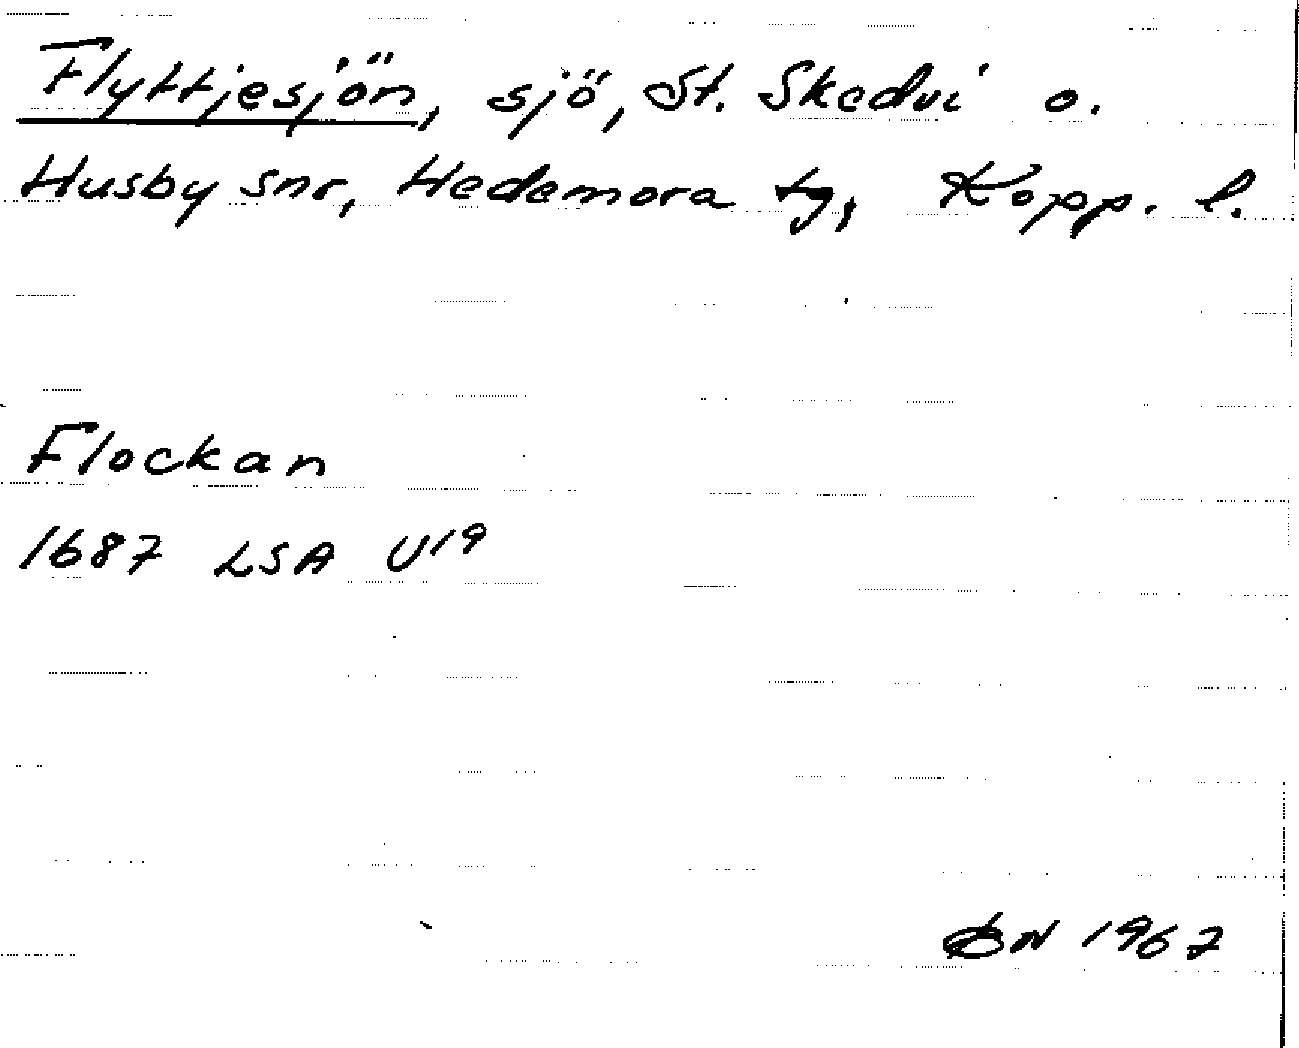 Flyttjesjön, sjö, St. Skedvi o.
Husby snr, Hedemora tg, Kopp. l.
Flockan
1687 LSA U19
1967